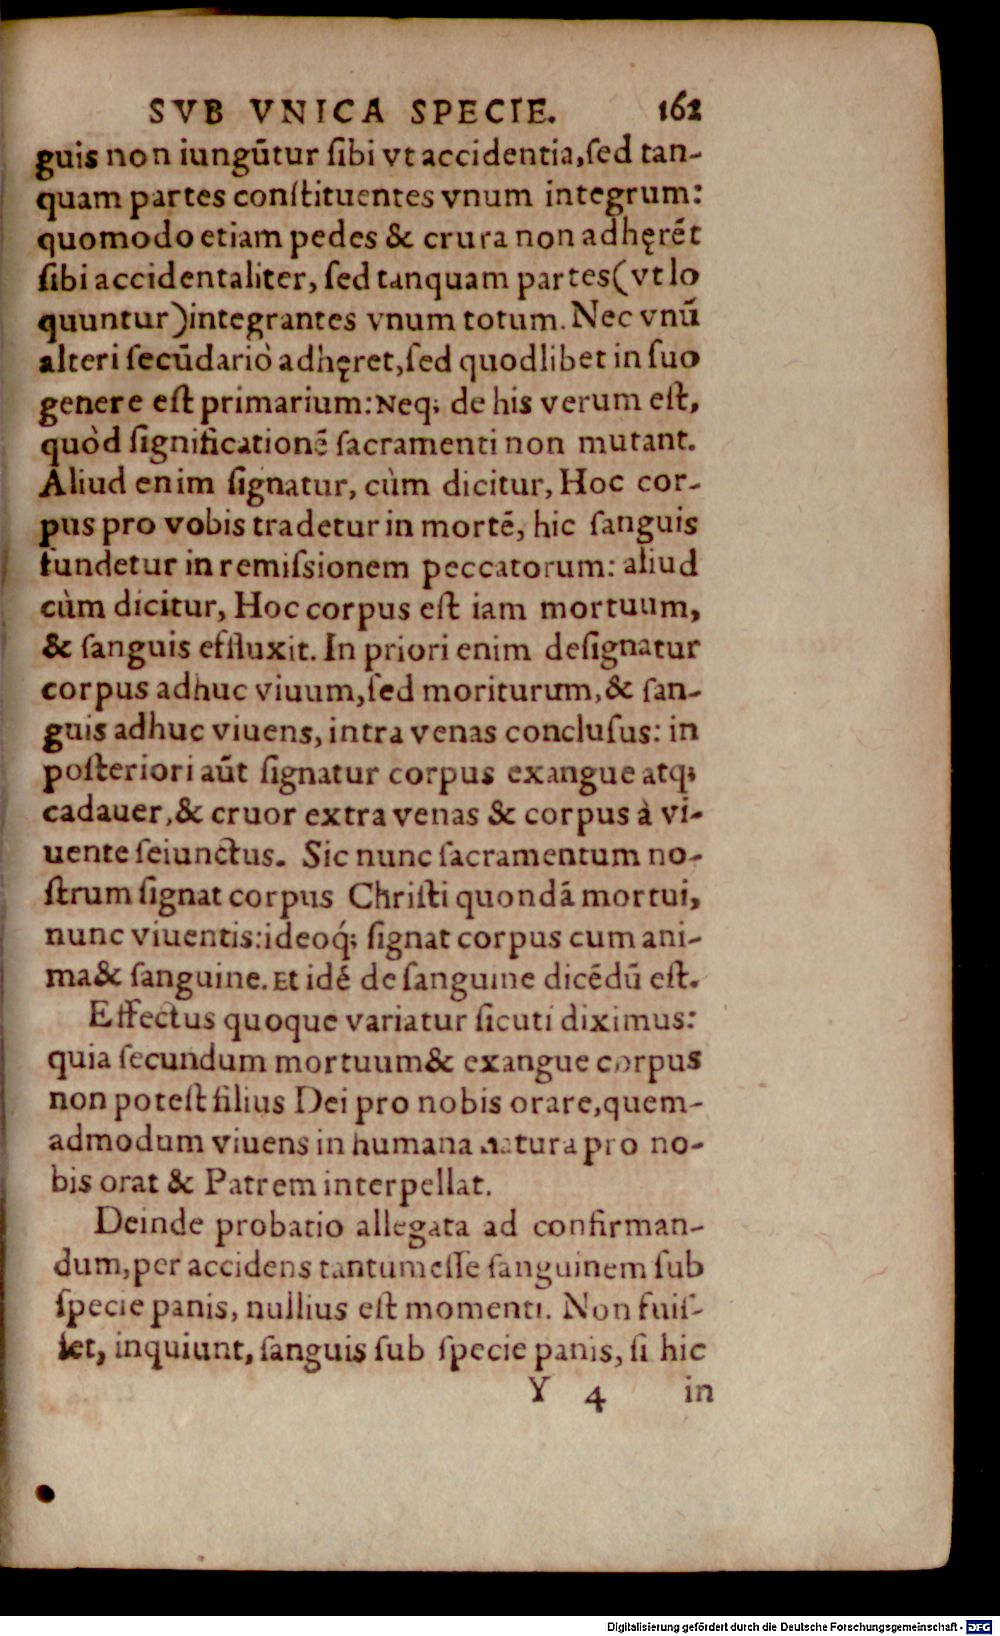 SVB VNICA SPECIE. 162
guis non iungūtur ſibi vt accidentia,ſed tan-
quam partes conſtituentes vnum integrum:
quomodo etiam pedes & crura non adhęrēt
ſibi accidentaliter, ſed tanquam partes(vt lo
quuntur)integrantes vnum totum. Nec vnū
alteri ſecūdariò adhęret,ſed quodlibet in ſuo
genere eſt primarium:Neq; de his verum eſt,
quòd ſignificationē ſacramenti non mutant.
Aliud enim ſignatur, cùm dicitur, Hoc cor-
pus pro vobis tradetur in mortē, hic ſanguis
fundetur in remiſsionem peccatorum: aliud
cùm dicitur, Hoc corpus eſt iam mortuum,
& ſanguis effluxit. In priori enim deſignatur
corpus adhuc viuum,ſed moriturum,& ſan-
guis adhuc viuens, intra venas concluſus: in
poſteriori aūt ſignatur corpus exangue atq;
cadauer,& cruor extra venas & corpus à vi-
uente ſeiunctus. Sic nunc ſacramentum no-
ſtrum ſignat corpus Chriſti quondā mortui,
nunc viuentis:ideoq́; ſignat corpus cum ani-
ma& ſanguine. Et idē de ſanguine dicēdū eſt.
Effectus quoque variatur ſicuti diximus:
quia ſecundum mortuum& exangue corpus
non poteſt filius Dei pro nobis orare,quem-
admodum viuens in humana natura pro no-
bis orat & Patrem interpellat.
Deinde probatio allegata ad confirman-
dum,per accidens tantum eſſe ſanguinem ſub
ſpecie panis, nullius eſt momenti. Non fuiſ-
ſet, inquiunt, ſanguis ſub ſpecie panis, ſi hic
Y 4 in
Digitalisierung gefördert durch die Deutsche Forschungsgemeinschaft - DFG